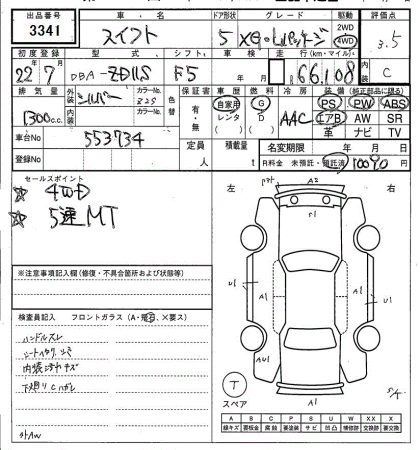 出品番号 車・名 ドア形状 グレード 駆動 評価点
3341 スイフト 5 XG・Lパッケージ 2WD 4WD 3.5
初度登録 型式 シフト 車検 走行(km・マイル) 内装
22年7月 DBA-ZD11S F5 年 月 66,108 C
排気量 外装 カラーNo. 色替 保証書 車歴 燃料 冷房 装備(純正部品に限る)
1300c.c. シルバー Z2S 有・無 自家用 G AAC PS PW ABS
内装 カラーNo. レンタ D エアB AW SR
( ) 革 ナビ TV
車台No 553734 定員 積載量 名変期限 年 月 日
登録No 人 t R料金 未預託・預託済 円
セールスポイント
☆ 4WD
☆ 5速MT
左 右
A2
A1
U1 A1 A1 U1
A1
※注意事項記入欄(修復・不具合箇所および状態等)
検査員記入 フロントガラス(A・飛石、×要ス)
ハンドルスレ
内装汚れキズ
下廻りCハガレ
T
スペア
A1
A B C P S U W X XX X
線キズ 要板金 腐蝕 要塗装 サビ 凸凹 補修跡 交換跡 要交換